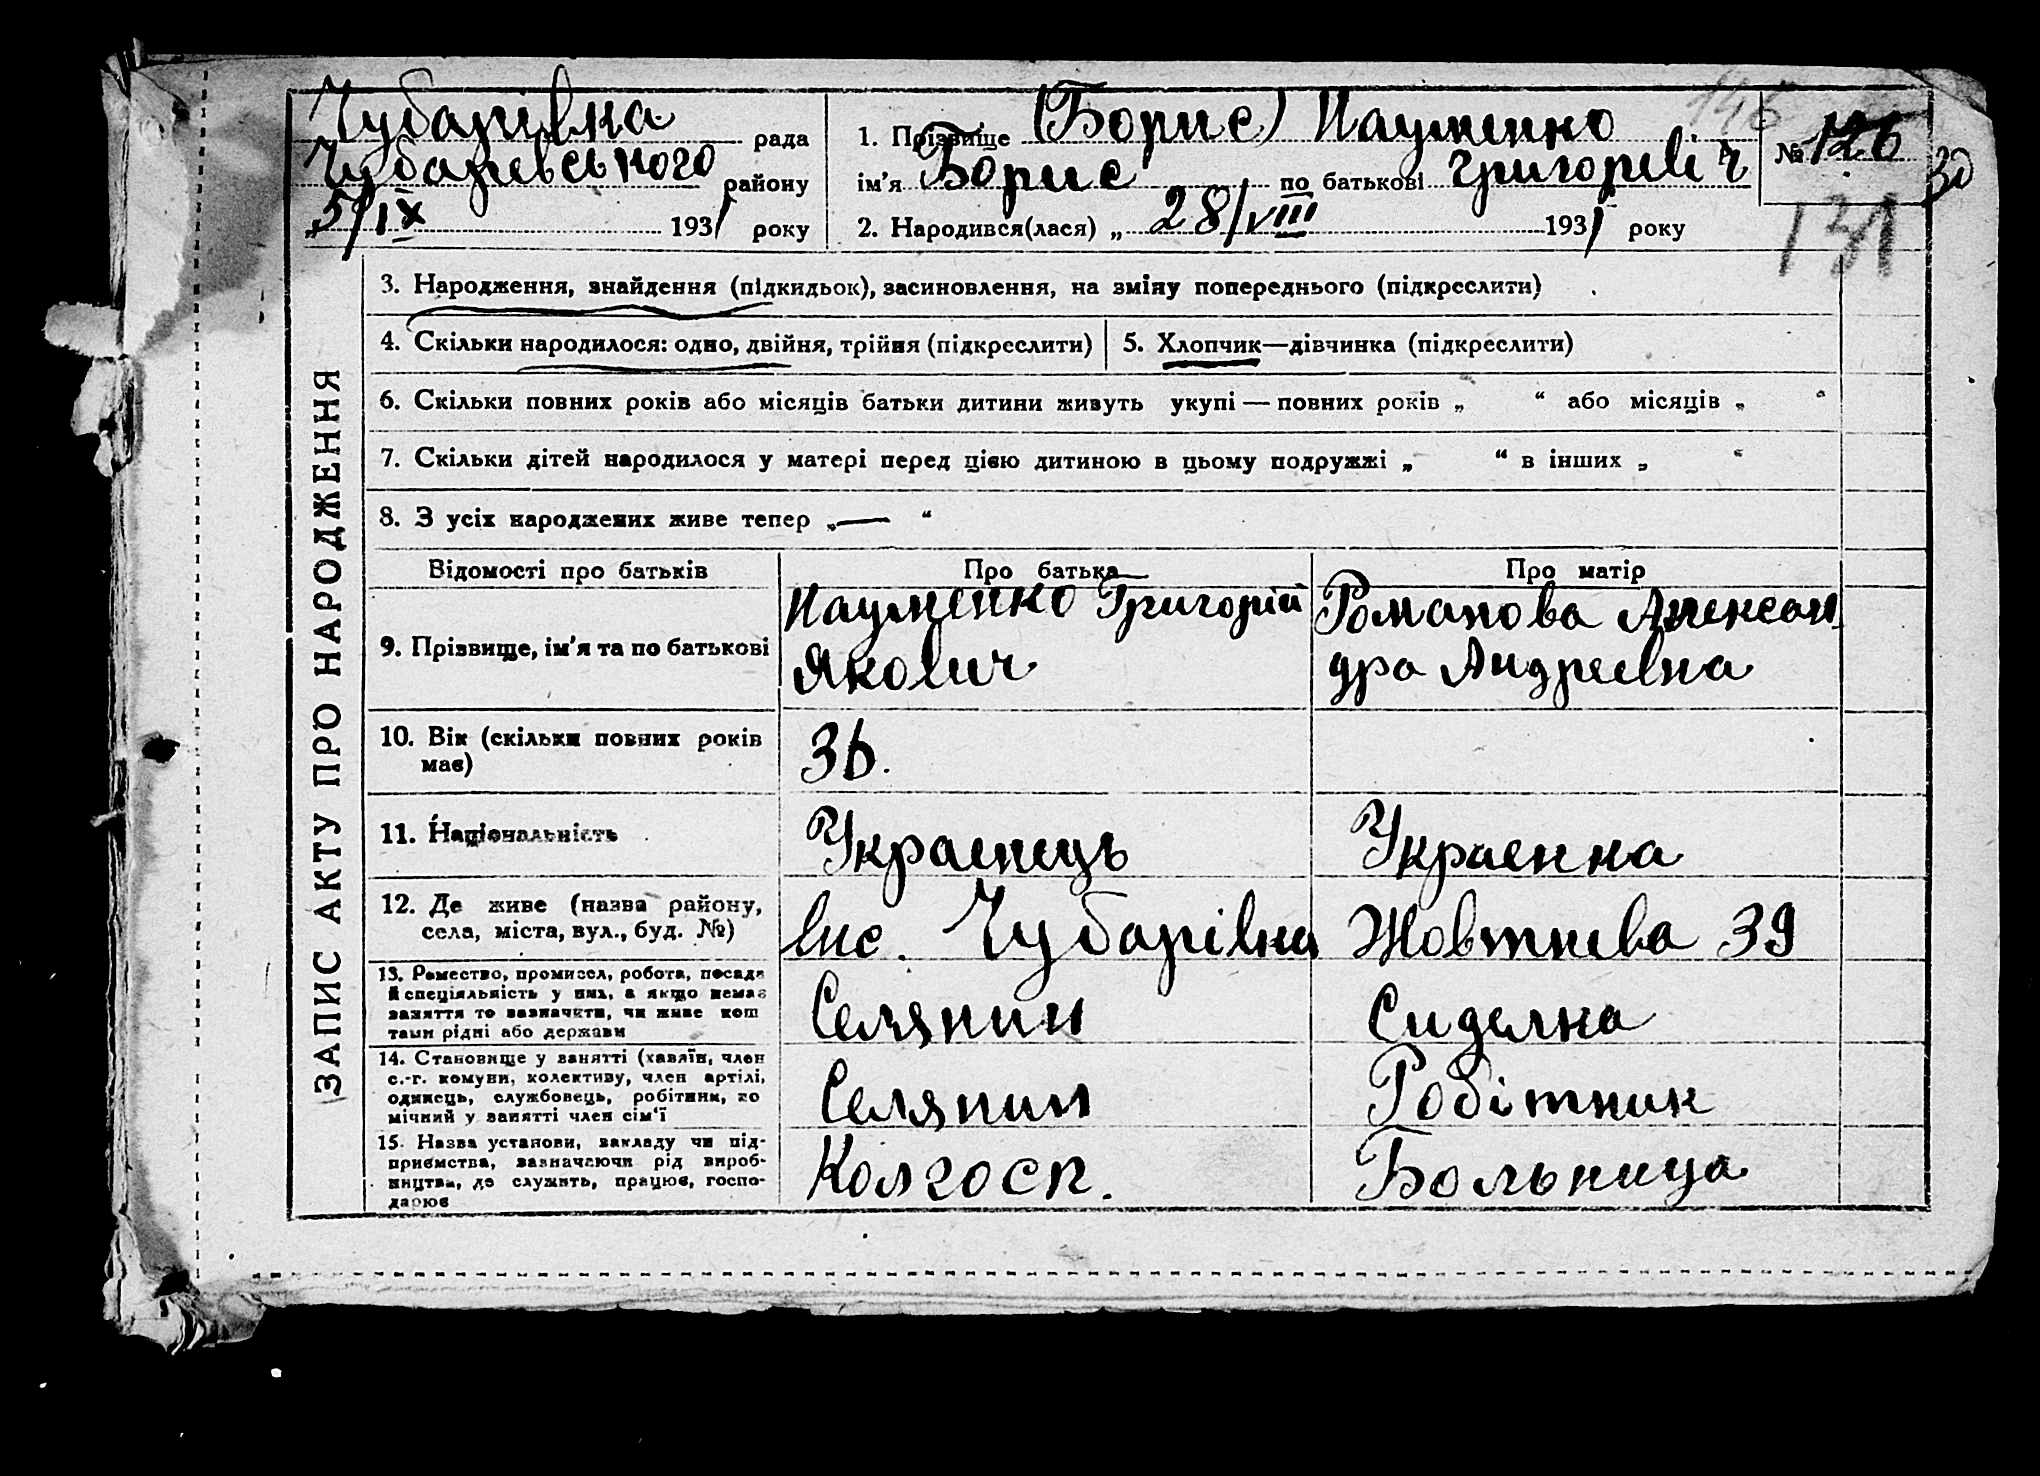 Чубарівка рада
Чубаревського району
5/IX 1931 року
1. Прізвище (Борис) Науменко
ім'я Борис по батькові Григоревіч
2. Народився(лася) „ 28/VIII 1931 року
146
№ 126
30
131
ЗАПИС АКТУ ПРО НАРОДЖЕННЯ
3. Народження, знайдення (підкидьок), засиновлення, на зміну попереднього (підкреслити)
4. Скільки народилося: одно, двійня, трійня (підкреслити) 5. Хлопчик—дівчинка (підкреслити)
6. Скільки повних років або місяців батьки дитини живуть укупі — повних років „ “ або місяців „ “
7. Скільки дітей народилося у матері перед цією дитиною в цьому подружжі „ “ в інших „ “
8. З усіх народжених живе тепер „— “
Відомості про батьків Про батька Про матір
9. Прізвище, ім'я та по батькові
Науменко Григорій
Якович
Романова Алексан
дра Андреевна
10. Вік (скільки повних років
має)
36.
11. Національність Украенець Украенка
12. Де живе (назва району,
села, міста, вул., буд. №)
вис. Чубарівка Жовтнева 39
13. Ремество, промисел, робота, посада
й спеціяльність у них, а якщо немає
заняття то зазначити, чи живе кош
тами рідні або держави
Селянин Сиделка
14. Становище у занятті (хазяїн, член
с.-г. комуни, колективу, член артілі,
одинець, службовець, робітник, по
мічний у занятті член сім'ї
Селянин Робітник
15. Назва установи, закладу чи під-
приємства, зазначаючи рід вироб-
ництва, де служить, працює, госпо-
дарює
Колгосп. Больница